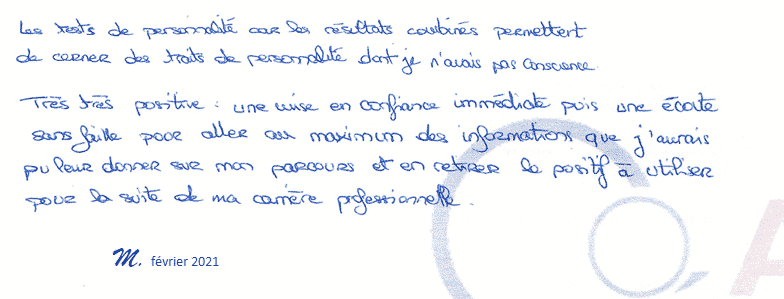 Les tests de personnalité car les résultats combinés permettent
de cerner des traits de personnalité dont je n'avais pas conscience.
Très très positive : une mise en confiance immédiate puis une écoute
sans faille pour aller au maximum des informations que j'aurais
pu leur donner sur mon parcours et en retirer le positif à utiliser
pour la suite de ma carrière professionnelle.
M. février 2021